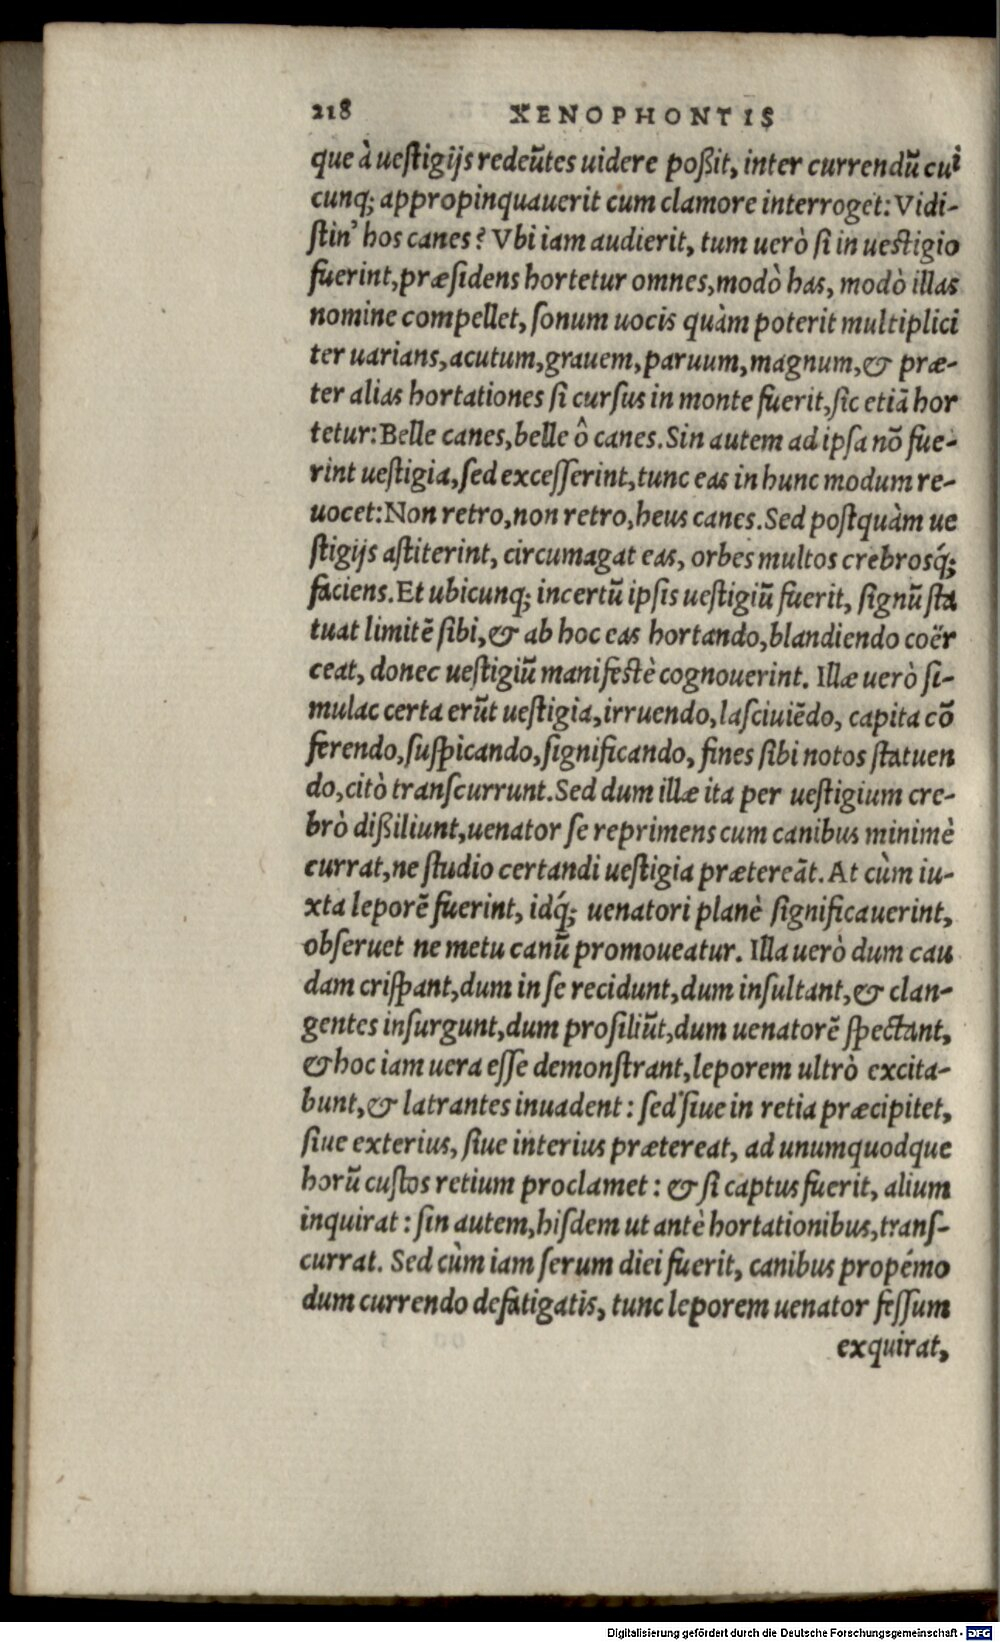 218 XENOPHONTIS
que à ueſtigijs redeũtes uidere poßit, inter currendũ cui
cunq; appropinquauerit cum clamore interroget: Vidi-
ſtin' hos canes? Vbi iam audierit, tum uerò ſi in ueſtigio
fuerint, præſidens hortetur omnes, modò has, modò illas
nomine compellet, ſonum uocis quàm poterit multiplici
ter uarians, acutum, grauem, paruum, magnum, & præ-
ter alias hortationes ſi curſus in monte fuerit, ſic etiã hor
tetur: Belle canes, belle ô canes. Sin autem ad ipſa nõ fue-
rint ueſtigia, ſed exceſſerint, tunc eas in hunc modum re-
uocet: Non retro, non retro, heus canes. Sed poſtquàm ue
ſtigijs aſtiterint, circumagat eas, orbes multos crebrosq́;
faciens. Et ubicunq; incertũ ipſis ueſtigiũ fuerit, ſignũ ſta
tuat limitẽ ſibi, & ab hoc eas hortando, blandiendo coër
ceat, donec ueſtigiũ manifeſtè cognouerint. Illæ uerò ſi-
mulac certa erũt ueſtigia, irruendo, laſciuiẽdo, capita cõ
ferendo, ſuſpicando, ſignificando, fines ſibi notos ſtatuen
do, citò tranſcurrunt. Sed dum illæ ita per ueſtigium cre-
brò dißiliunt, uenator ſe reprimens cum canibus minimè
currat, ne ſtudio certandi ueſtigia prætereãt. At cùm iu-
xta leporẽ fuerint, idq́; uenatori planè ſignificauerint,
obſeruet ne metu canũ promoueatur. Illa uerò dum cau
dam criſpant, dum in ſe recidunt, dum inſultant, & clan-
gentes inſurgunt, dum proſiliũt, dum uenatorẽ ſpectant,
& hoc iam uera eſſe demonſtrant, leporem ultrò excita-
bunt, & latrantes inuadent: ſed ſiue in retia præcipitet,
ſiue exterius, ſiue interius prætereat, ad unumquodque
horũ cuſtos retium proclamet: & ſi captus fuerit, alium
inquirat: ſin autem, hiſdem ut antè hortationibus, tranſ-
currat. Sed cùm iam ſerum diei fuerit, canibus propémo
dum currendo defatigatis, tunc leporem uenator feſſum
exquirat,
Digitalisierung gefördert durch die Deutsche Forschungsgemeinschaft - DFG